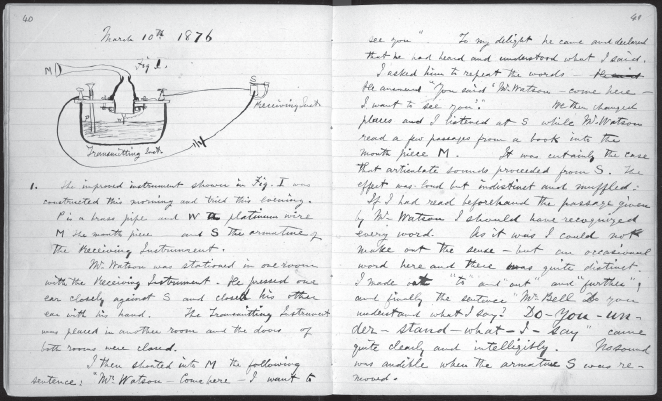 40
March 10th 1876
M
Fig. 1.
S
P
W
Receiving Inst.
Transmitting Inst.
1. The improved instrument shown in Fig. I was
constructed this morning and tried this evening.
P is a brass pipe and W the platinum wire
M the mouth piece and S the armature of
the Receiving Instrument.
Mr. Watson was stationed in one room
with the Receiving Instrument. He pressed one
ear closely against S and closed his other
ear with his hand. The Transmitting Instrument
was placed in another room and the doors of
both rooms were closed.
I then shouted into M the following
sentence: "Mr. Watson - Come here - I want to
41
see you" To my delight he came and declared
that he had heard and understood what I said.
I asked him to repeat the words - He said
He answered "You said 'Mr. Watson - come here -
I want to see you'." We then changed
places and I listened at S while Mr. Watson
read a few passages from a book into the
mouth piece M. It was certainly the case
that articulate sounds proceeded from S. The
effect was loud but indistinct and muffled.
If I had read beforehand the passage given
by Mr. Watson I should have recognized
every word. As it was I could not
make out the sense - but an occasional
word here and there was quite distinct.
I made out "to" and "out" and "further";
and finally the sentence "Mr. Bell Do you
understand what I say? Do-You-un-
der-stand-what-I-say" came
quite clearly and intelligibly. No sound
was audible when the armature S was re-
moved.